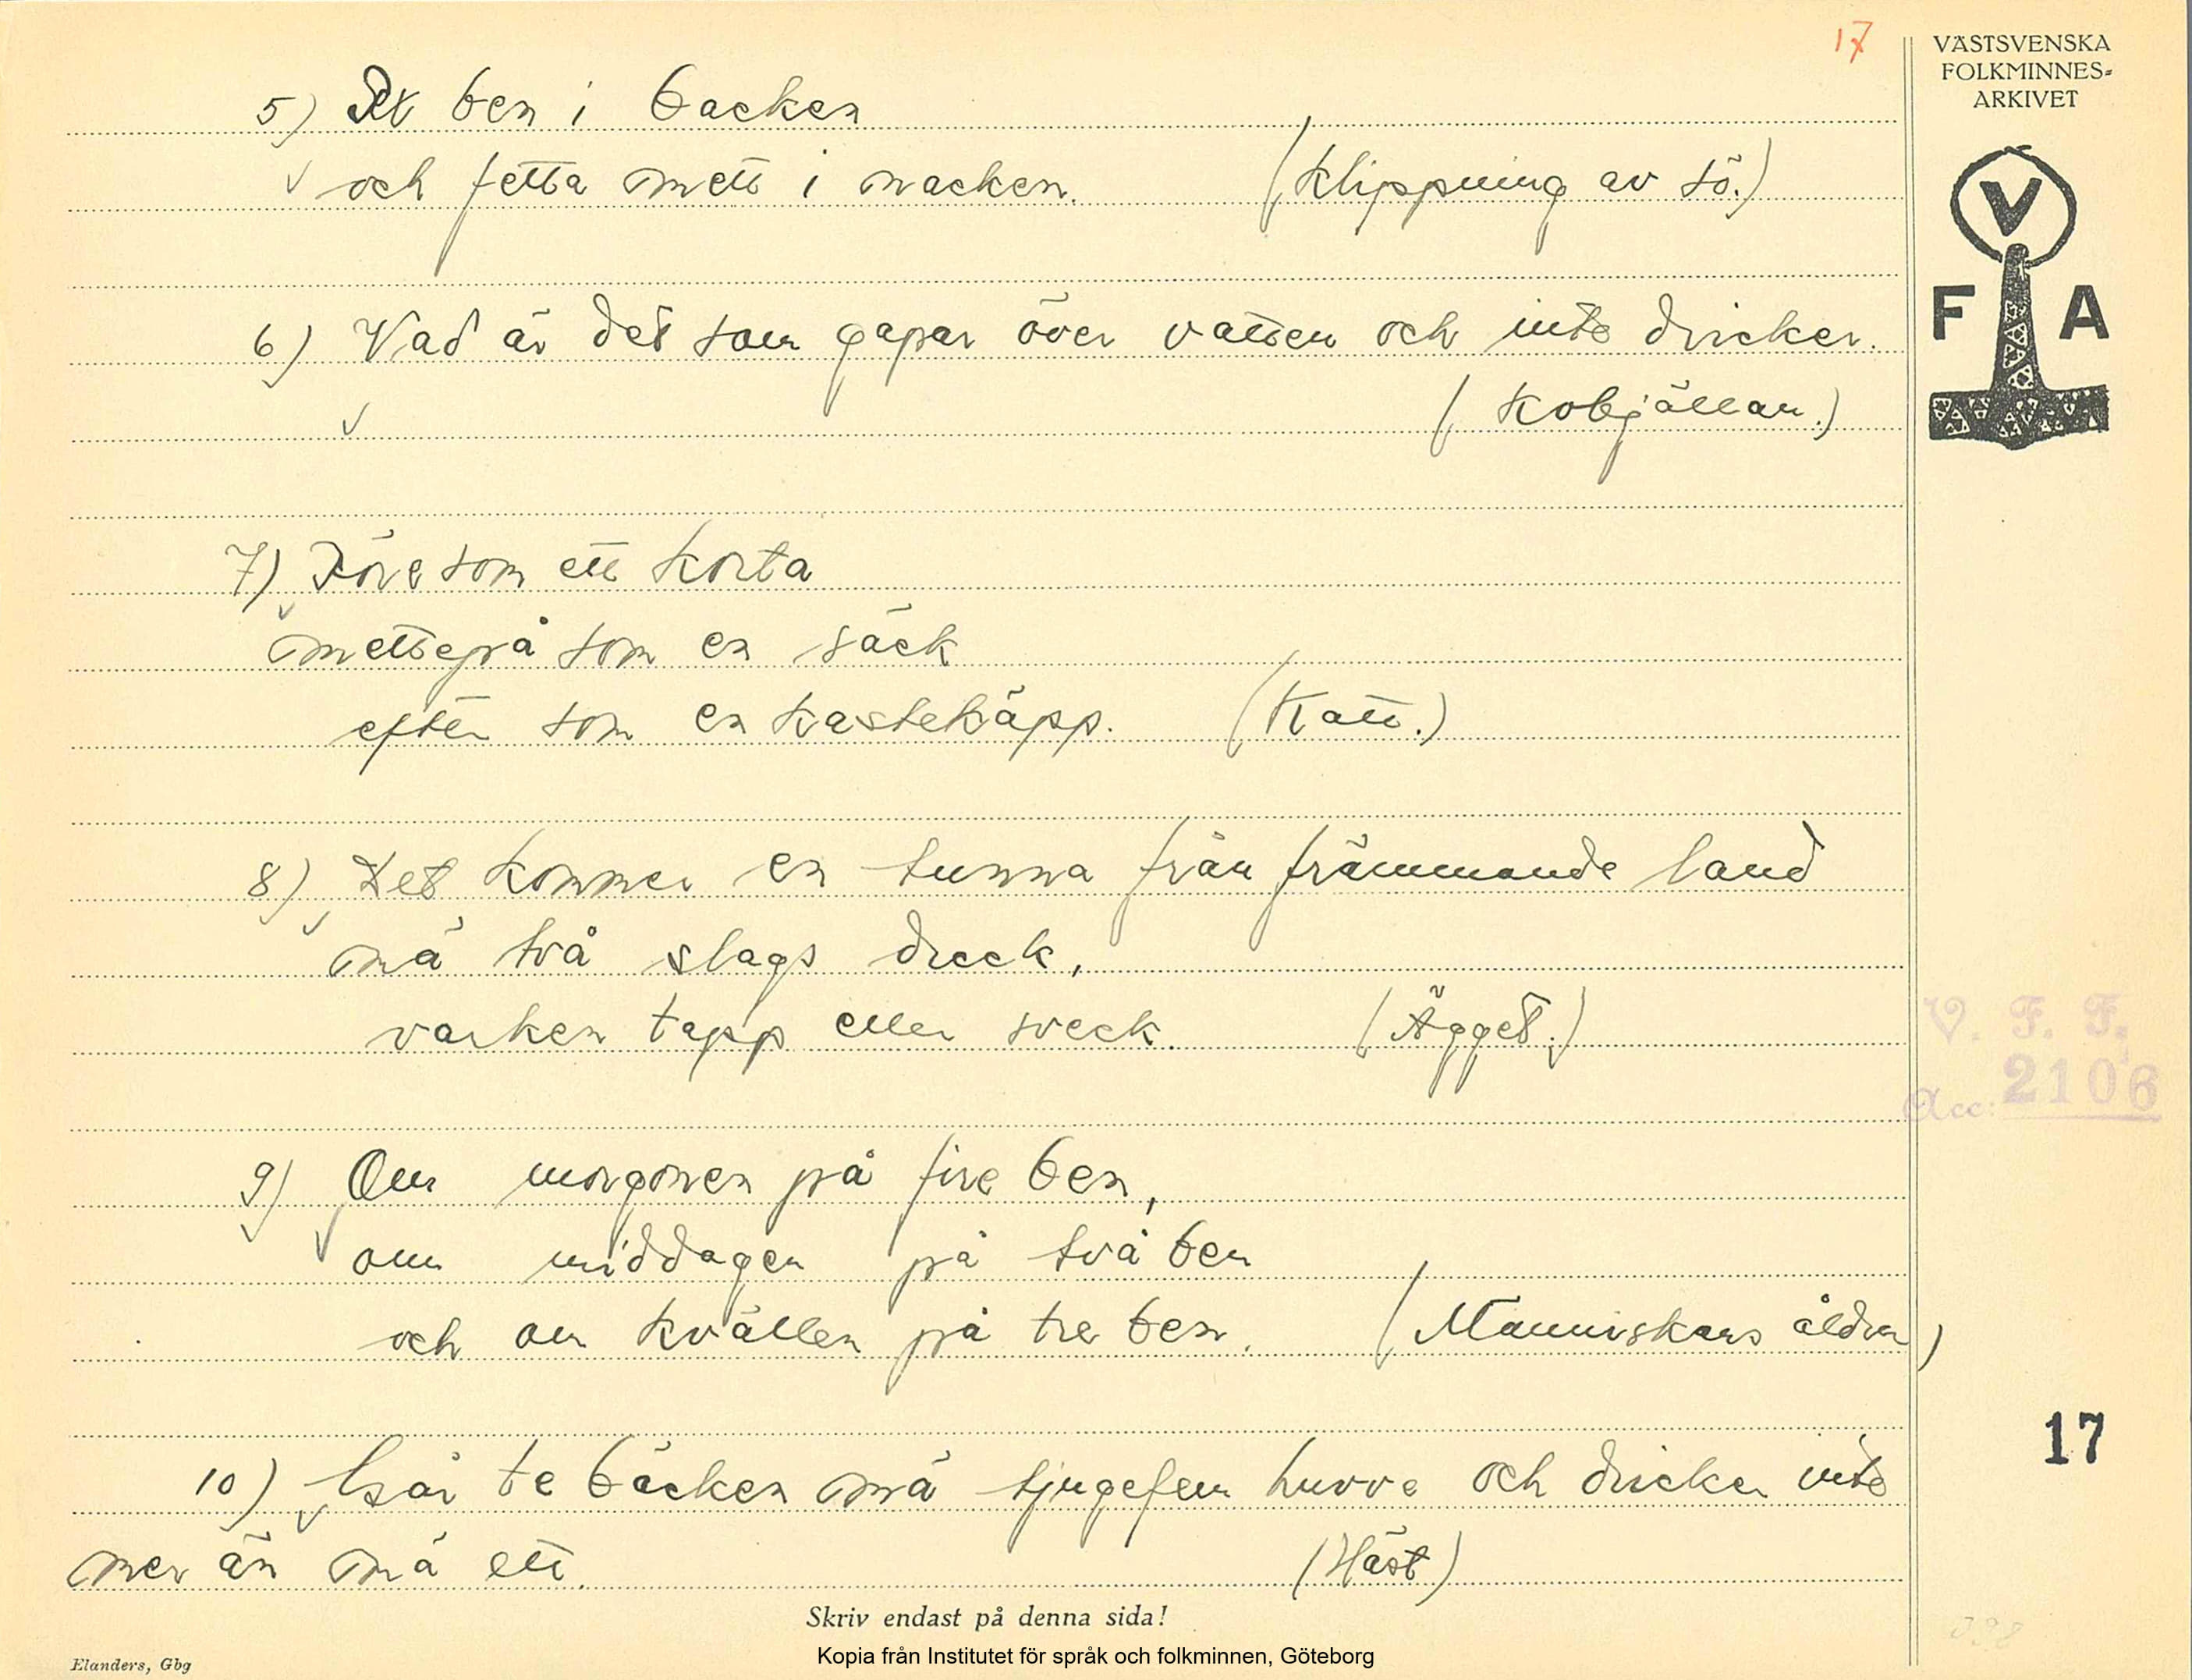 17
VÄSTSVENSKA
FOLKMINNES-
ARKIVET
V
F A
5) ben i backen
och fetta mett i nacken. (Klippning av sö.)
6) Vad är det som gapar över vatten och inte dricker.
(Kobjällan.)
7) Före som ett
mettepå som en säck
efter som en käpp. (Katt.)
8) Det kommer en tunna från främmande land
mä två slags dreck,
varken tapp eller sveck. (Ägget.)
9) Om morgonen på fire ben,
om middagen på två ben
och om kvällen på tre ben. (Människans åldrar)
10) Går te bäcken mä tjugefem huvve och dricker inte
mer än mä ett. (Häst)
V. F. F.
Acc: 2106
17
Skriv endast på denna sida!
Kopia från Institutet för språk och folkminnen, Göteborg
Elanders, Gbg